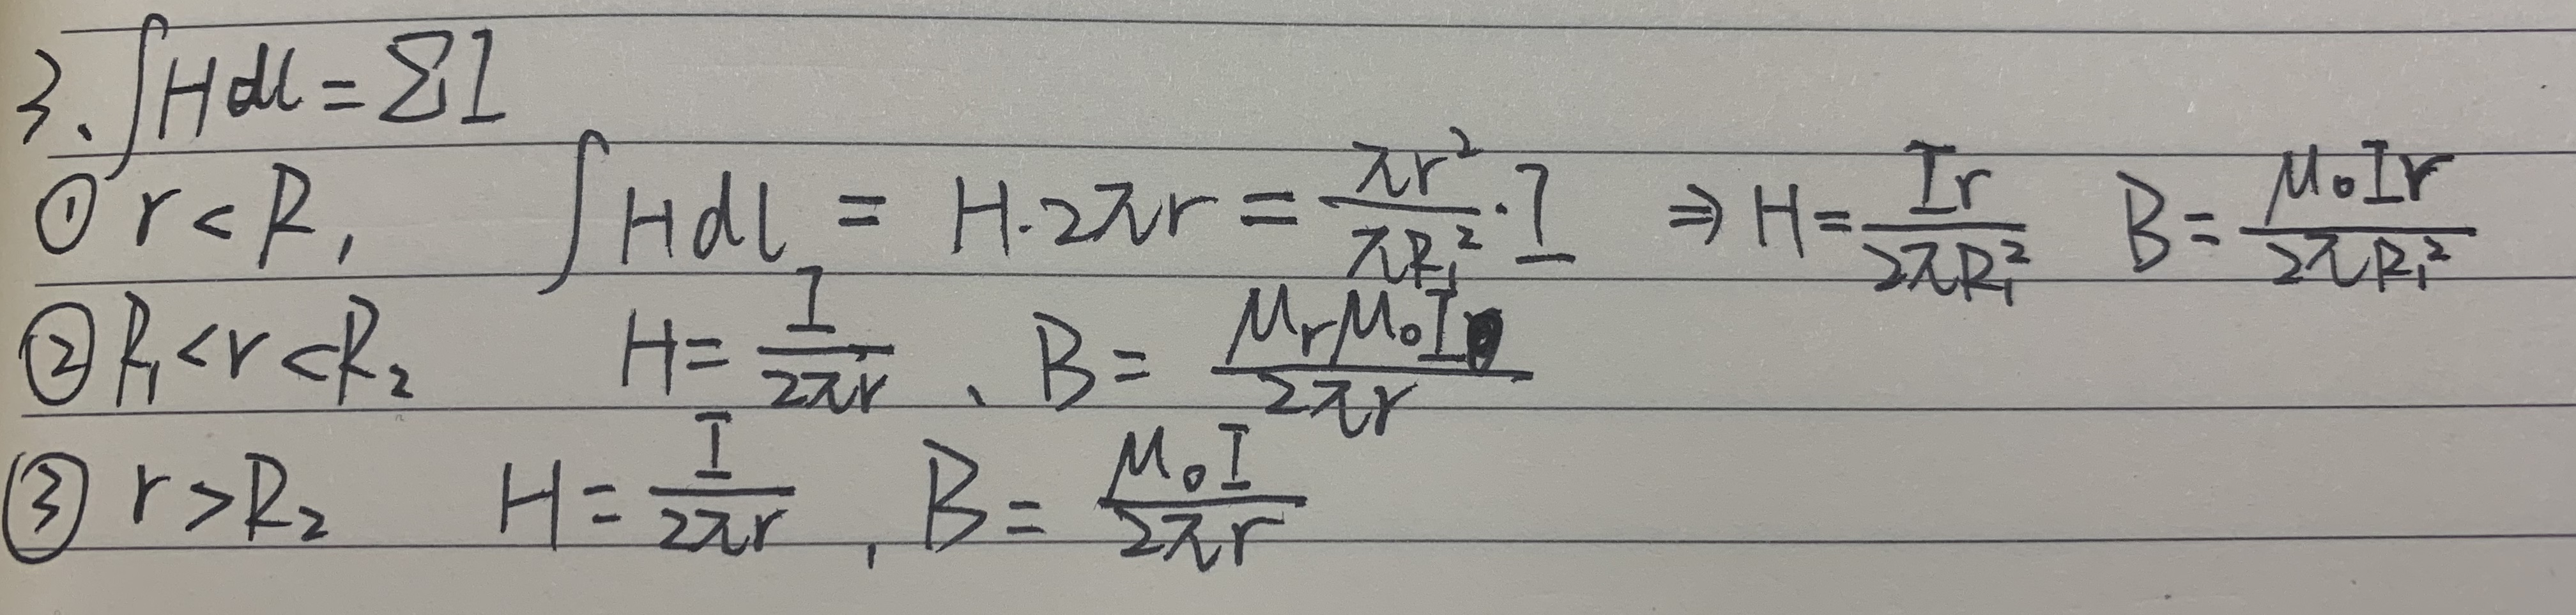 3、∫Hdl=ΣI
① r<R₁ ∫Hdl = H·2πr = πr²/πR₁² · I ⇒ H = Ir/2πR₁² B = μ₀Ir/2πR₁²
② R₁<r<R₂ H = I/2πr 、 B = μᵣμ₀I/2πr
③ r>R₂ H = I/2πr , B = μ₀I/2πr